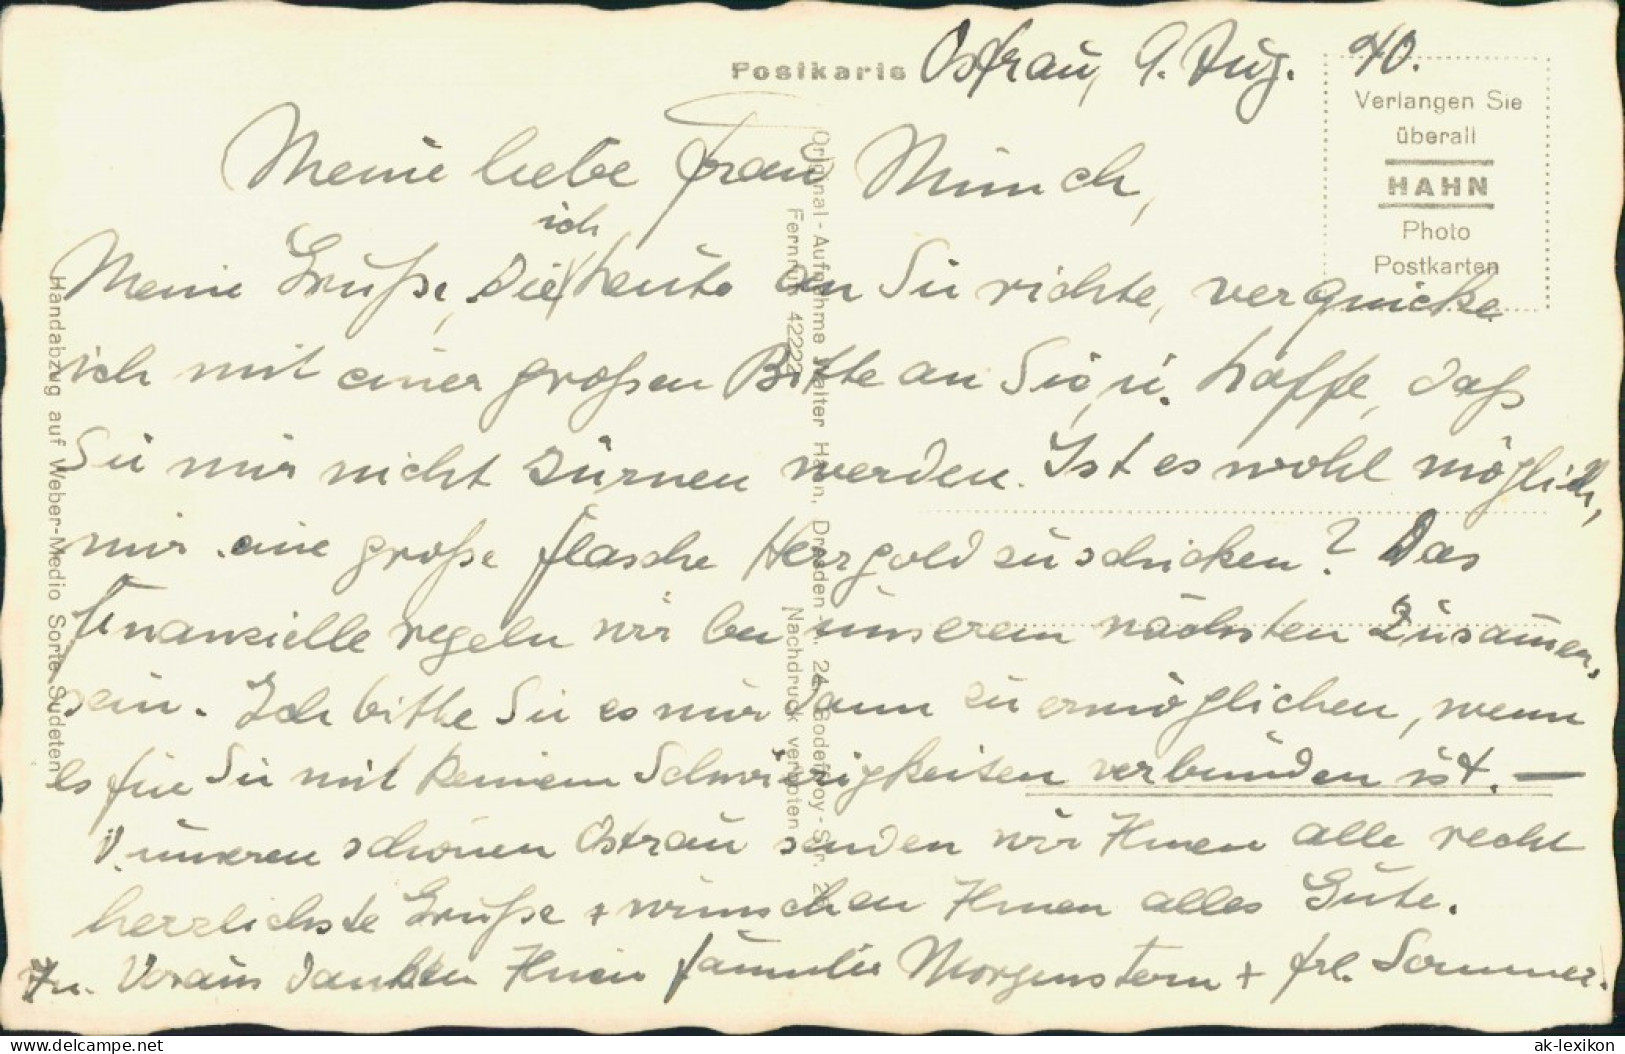 Postkarte Ostrau, 9. Aug. 40.
Verlangen Sie
überall
HAHN
Photo
Postkarten
Meine liebe Frau Münch,
ich
Meine Grüße, die heute an Sie richte, verquicke
ich mit einer großen Bitte an Sie, u. hoffe, daß
Sie mir nicht zürnen werden. Ist es wohl möglich,
mir eine große Flasche Herrgold zu schicken? Das
Finanzielle regeln wir bei unserem nächsten Zusammen,
sein. Ich bitte Sie es mir dann zu ermöglichen, wenn
es für Sie mit keinem Schwierigkeiten verbunden ist. —
V. unseren schönen Ostrau senden wir Ihnen alle recht
herzlichste Grüße + wünschen Ihnen alles Gute.
Im Voraus danken Ihnen Familie Morgenstern + Frl. Sommer.
Original-Aufnahme Walter Hahn, Dresden-A. 24, Godeffroy-Str. 2
Fernruf: 42222 Nachdruck verboten
Handabzug auf Weber-Medio Sorte Sudeten
www.delcampe.net
ak-lexikon